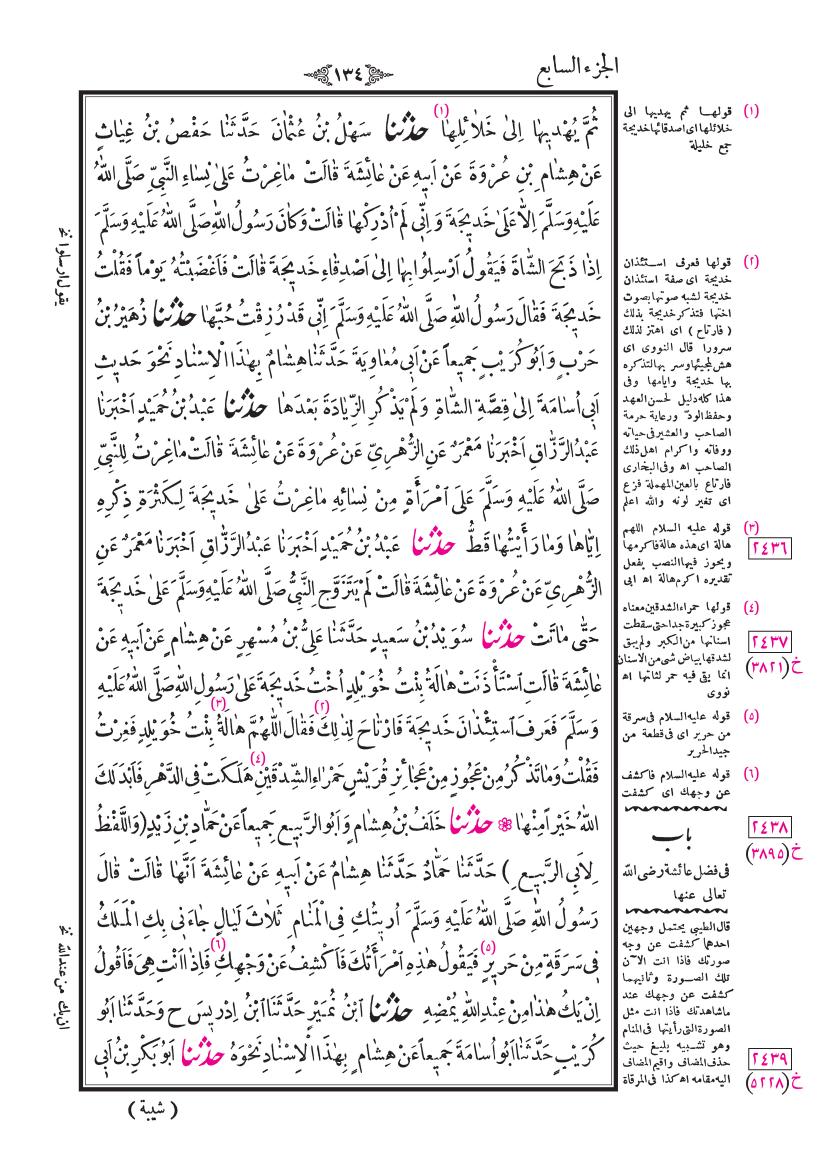 الجزء السابع
١٣٤
ثُمَّ يُهْدِيهَا اِلىٰ خَلاٰئِلِهَا (١) حدثنا سَهْلُ بْنُ عُثْمَانَ حَدَّثَنَا حَفْصُ بْنُ غِيَاثٍ
عَنْ هِشَامِ بْنِ عُرْوَةَ عَنْ اَبِيهِ عَنْ عَائِشَةَ قَالَتْ مَا غِرْتُ عَلىٰ نِسَاءِ النَّبِيِّ صَلَّى اللهُ
عَلَيْهِ وَسَلَّمَ اِلاَّ عَلىٰ خَدِيجَةَ وَاِنِّى لَمْ اُدْرِكْهَا قَالَتْ وَكَانَ رَسُولُ اللهِ صَلَّى اللهُ عَلَيْهِ وَسَلَّمَ
اِذَا ذَبَحَ الشَّاةَ فَيَقُولُ اَرْسِلُوا بِهَا اِلىٰ اَصْدِقَاءِ خَدِيجَةَ قَالَتْ فَاَغْضَبْتُهُ يَوْماً فَقُلْتُ
خَدِيجَةَ فَقَالَ رَسُولُ اللهِ صَلَّى اللهُ عَلَيْهِ وَسَلَّمَ اِنِّى قَدْ رُزِقْتُ حُبَّهَا حدثنا زُهَيْرُ بْنُ
حَرْبٍ وَاَبُو كُرَيْبٍ جَمِيعاً عَنْ اَبِى مُعَاوِيَةَ حَدَّثَنَا هِشَامٌ بِهٰذَا الْاِسْنَادِ نَحْوَ حَدِيثِ
اَبِى اُسَامَةَ اِلىٰ قِصَّةِ الشَّاةِ وَلَمْ يَذْكُرِ الزِّيَادَةَ بَعْدَهَا حدثنا عَبْدُ بْنُ حُمَيْدٍ اَخْبَرَنَا
عَبْدُ الرَّزَّاقِ اَخْبَرَنَا مَعْمَرٌ عَنِ الزُّهْرِىِّ عَنْ عُرْوَةَ عَنْ عَائِشَةَ قَالَتْ مَا غِرْتُ لِلنَّبِىِّ
صَلَّى اللهُ عَلَيْهِ وَسَلَّمَ عَلَى امْرَأَةٍ مِنْ نِسَائِهِ مَا غِرْتُ عَلىٰ خَدِيجَةَ لِكَثْرَةِ ذِكْرِهِ
اِيَّاهَا وَمَا رَأَيْتُهَا قَطُّ حدثنا عَبْدُ بْنُ حُمَيْدٍ اَخْبَرَنَا عَبْدُ الرَّزَّاقِ اَخْبَرَنَا مَعْمَرٌ عَنِ
الزُّهْرِىِّ عَنْ عُرْوَةَ عَنْ عَائِشَةَ قَالَتْ لَمْ يَتَزَوَّجِ النَّبِىُّ صَلَّى اللهُ عَلَيْهِ وَسَلَّمَ عَلىٰ خَدِيجَةَ
حَتّٰى مَاتَتْ حدثنا سُوَيْدُ بْنُ سَعِيدٍ حَدَّثَنَا عَلِىُّ بْنُ مُسْهِرٍ عَنْ هِشَامٍ عَنْ اَبِيهِ عَنْ
عَائِشَةَ قَالَتِ اسْتَأْذَنَتْ هَالَةُ بِنْتُ خُوَيْلِدٍ اُخْتُ خَدِيجَةَ عَلىٰ رَسُولِ اللهِ صَلَّى اللهُ عَلَيْهِ
وَسَلَّمَ فَعَرَفَ اسْتِئْذَانَ خَدِيجَةَ فَارْتَاحَ لِذٰلِكَ (٢) فَقَالَ اللّٰهُمَّ هَالَةُ (٣) بِنْتُ خُوَيْلِدٍ فَغِرْتُ
فَقُلْتُ وَمَا تَذْكُرُ مِنْ عَجُوزٍ مِنْ عَجَائِزِ قُرَيْشٍ حَمْرَاءِ الشِّدْقَيْنِ (٤) هَلَكَتْ فِى الدَّهْرِ فَاَبْدَلَكَ
اللهُ خَيْراً مِنْهَا حدثنا خَلَفُ بْنُ هِشَامٍ وَاَبُو الرَّبِيعِ جَمِيعاً عَنْ حَمَّادِ بْنِ زَيْدٍ (وَاللَّفْظُ
لِاَبِى الرَّبِيعِ) حَدَّثَنَا حَمَّادٌ حَدَّثَنَا هِشَامٌ عَنْ اَبِيهِ عَنْ عَائِشَةَ اَنَّهَا قَالَتْ قَالَ
رَسُولُ اللهِ صَلَّى اللهُ عَلَيْهِ وَسَلَّمَ اُرِيتُكِ فِى الْمَنَامِ ثَلاٰثَ لَيَالٍ جَاءَنِى بِكِ الْمَلَكُ
فِى سَرَقَةٍ مِنْ حَرِيرٍ (٥) فَيَقُولُ هٰذِهِ امْرَأَتُكَ فَاَكْشِفُ عَنْ وَجْهِكِ (٦) فَاِذَا اَنْتِ هِىَ فَاَقُولُ
اِنْ يَكُ هٰذَا مِنْ عِنْدِ اللهِ يُمْضِهِ حدثنا ابْنُ نُمَيْرٍ حَدَّثَنَا ابْنُ اِدْرِيسَ ح وَحَدَّثَنَا اَبُو
كُرَيْبٍ حَدَّثَنَا اَبُو اُسَامَةَ جَمِيعاً عَنْ هِشَامٍ بِهٰذَا الْاِسْنَادِ نَحْوَهُ حدثنا اَبُو بَكْرِ بْنُ اَبِى
( شيبة )
يقول ارسلوا نخ
ان يك من عند الله نخ
(١) قولها ثم يهديها الى
خلائلها اى اصدقائها خديجة
جمع خليلة
(٢) قولها فعرف استئذان
خديجة اى صفة استئذان
خديجة لشبه صوتها بصوت
اختها فتذكر خديجة بذلك
( فارتاح ) اى اهتز لذلك
سرورا قال النووى اى
هش لمجيئها وسر بها لتذكره
بها خديجة وايامها وفى
هذا كله دليل لحسن العهد
وحفظ الود ورعاية حرمة
الصاحب والعشير فى حياته
ووفاته واكرام اهل ذلك
الصاحب اه وفى البخارى
فارتاع بالعين المهملة فزع
اى تغير لونه والله اعلم
(٣) قوله عليه السلام اللهم
هالة اى هذه هالة فاكرمها
ويجوز فيها النصب بفعل
تقديره اكرم هالة اه ابى
٢٤٣٦
(٤) قولها حمراء الشدقين معناه
عجوز كبيرة جدا حتى سقطت
اسنانها من الكبر ولم يبق
لشدقها بياض شئ من الاسنان
انما بقى فيه حمر لثاتها اه
نووى
٢٤٣٧
خ (٣٨٢١)
(٥) قوله عليه السلام فى سرقة
من حرير اى فى قطعة من
جيد الحرير
(٦) قوله عليه السلام فاكشف
عن وجهك اى كشفت
باب
فى فضل عائشة رضى الله
تعالى عنها
٢٤٣٨
خ (٣٨٩٥)
قال الطيبى يحتمل وجهين
احدهما كشفت عن وجه
صورتك فاذا انت الآن
تلك الصورة وثانيهما
كشفت عن وجهك عند
ماشاهدتك فاذا انت مثل
الصورة التى رأيتها فى المنام
وهو تشبيه بليغ حيث
حذف المضاف واقيم المضاف
اليه مقامه اه كذا فى المرقاة
٢٤٣٩
خ (٥٢٢٨)